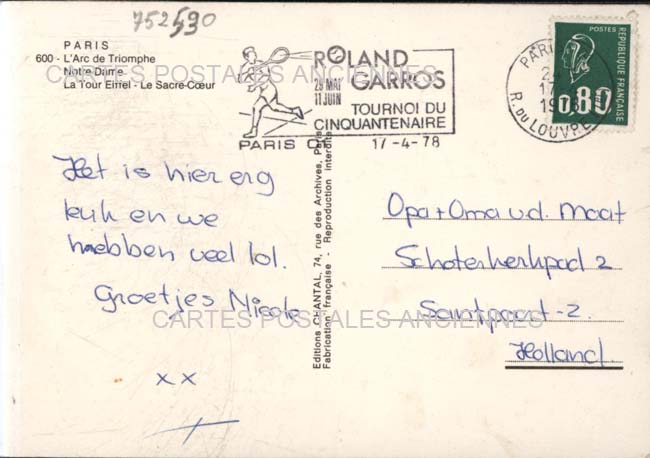 752530
PARIS
600 - L'Arc de Triomphe
Notre-Dame
La Tour Eiffel - Le Sacre-Cœur
CARTES POSTALES ANCIENNES
ROLAND
GARROS
29 MAI
11 JUIN
TOURNOI DU
CINQUANTENAIRE
PARIS 01
17-4-78
PARIS
17
19
R. DU LOUVRE
POSTES
REPUBLIQUE FRANÇAISE
0,80
Het is hier erg
leuk en we
hebben veel lol.
Groetjes Nicole
xx
Editions CHANTAL, 74, rue des Archives, Paris
Fabrication française - Reproduction interdite
Opa + Oma v.d. Maat
Schoterkerkpad 2
Santpoort-2.
Holland
CARTES POSTALES ANCIENNES